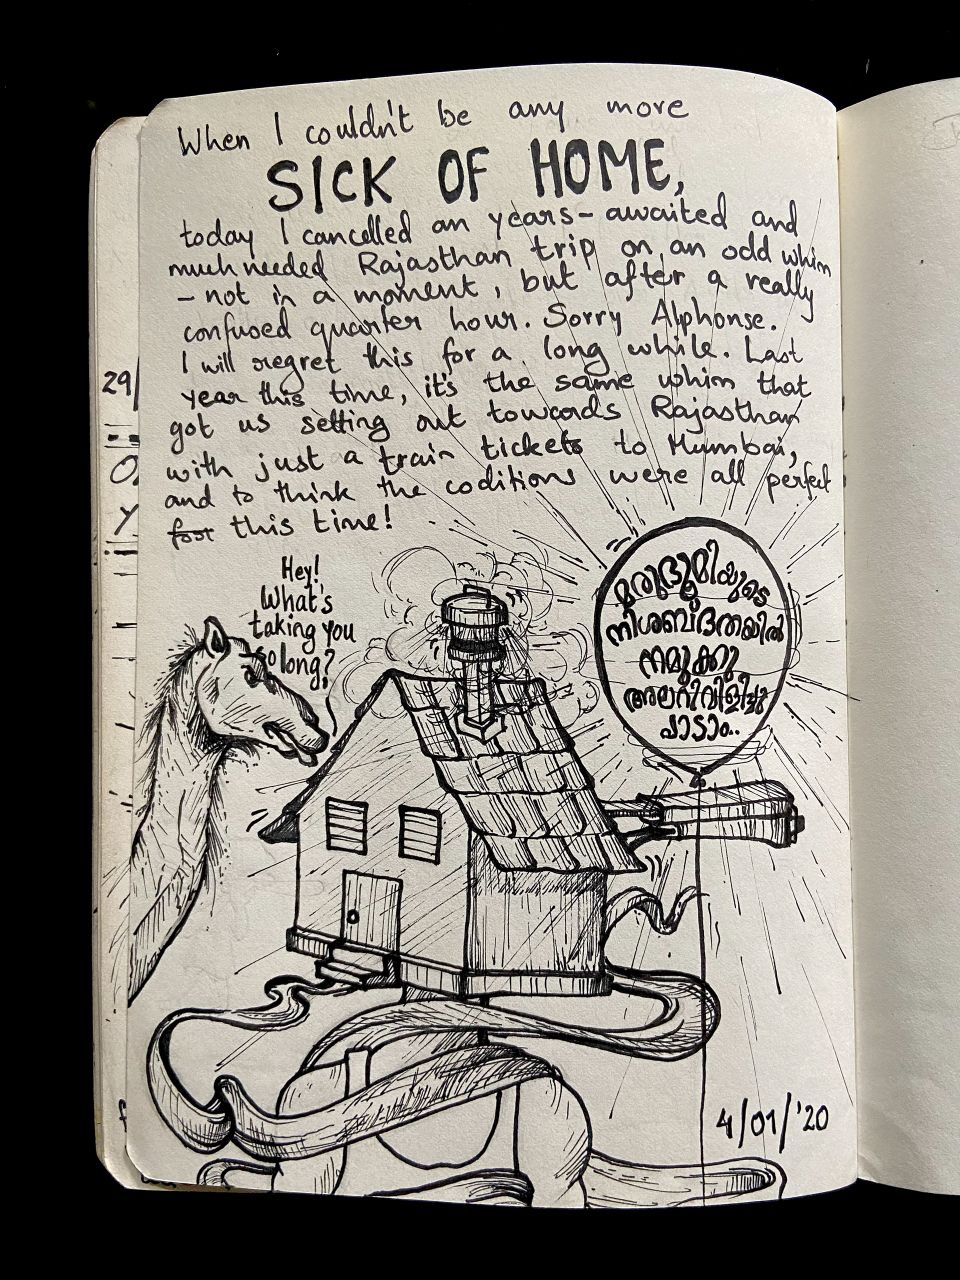 When I couldn't be any more
SICK OF HOME,
today I cancelled an years-awaited and
much needed Rajasthan trip on an odd whim
- not in a moment, but after a really
confused quarter hour. Sorry Alphonse.
I will regret this for a long while. Last
year this time, it's the same whim that
got us setting out towards Rajasthan
with just a train tickets to Mumbai,
and to think the coditions were all perfect
for this time!
Hey!
What's
taking you
so long?
മരുഭൂമിയുടെ
നിശബ്ദതയിൽ
നമുക്കു
അലറിവിളിച്ചു
പാടാം..
4/01/'20
29/